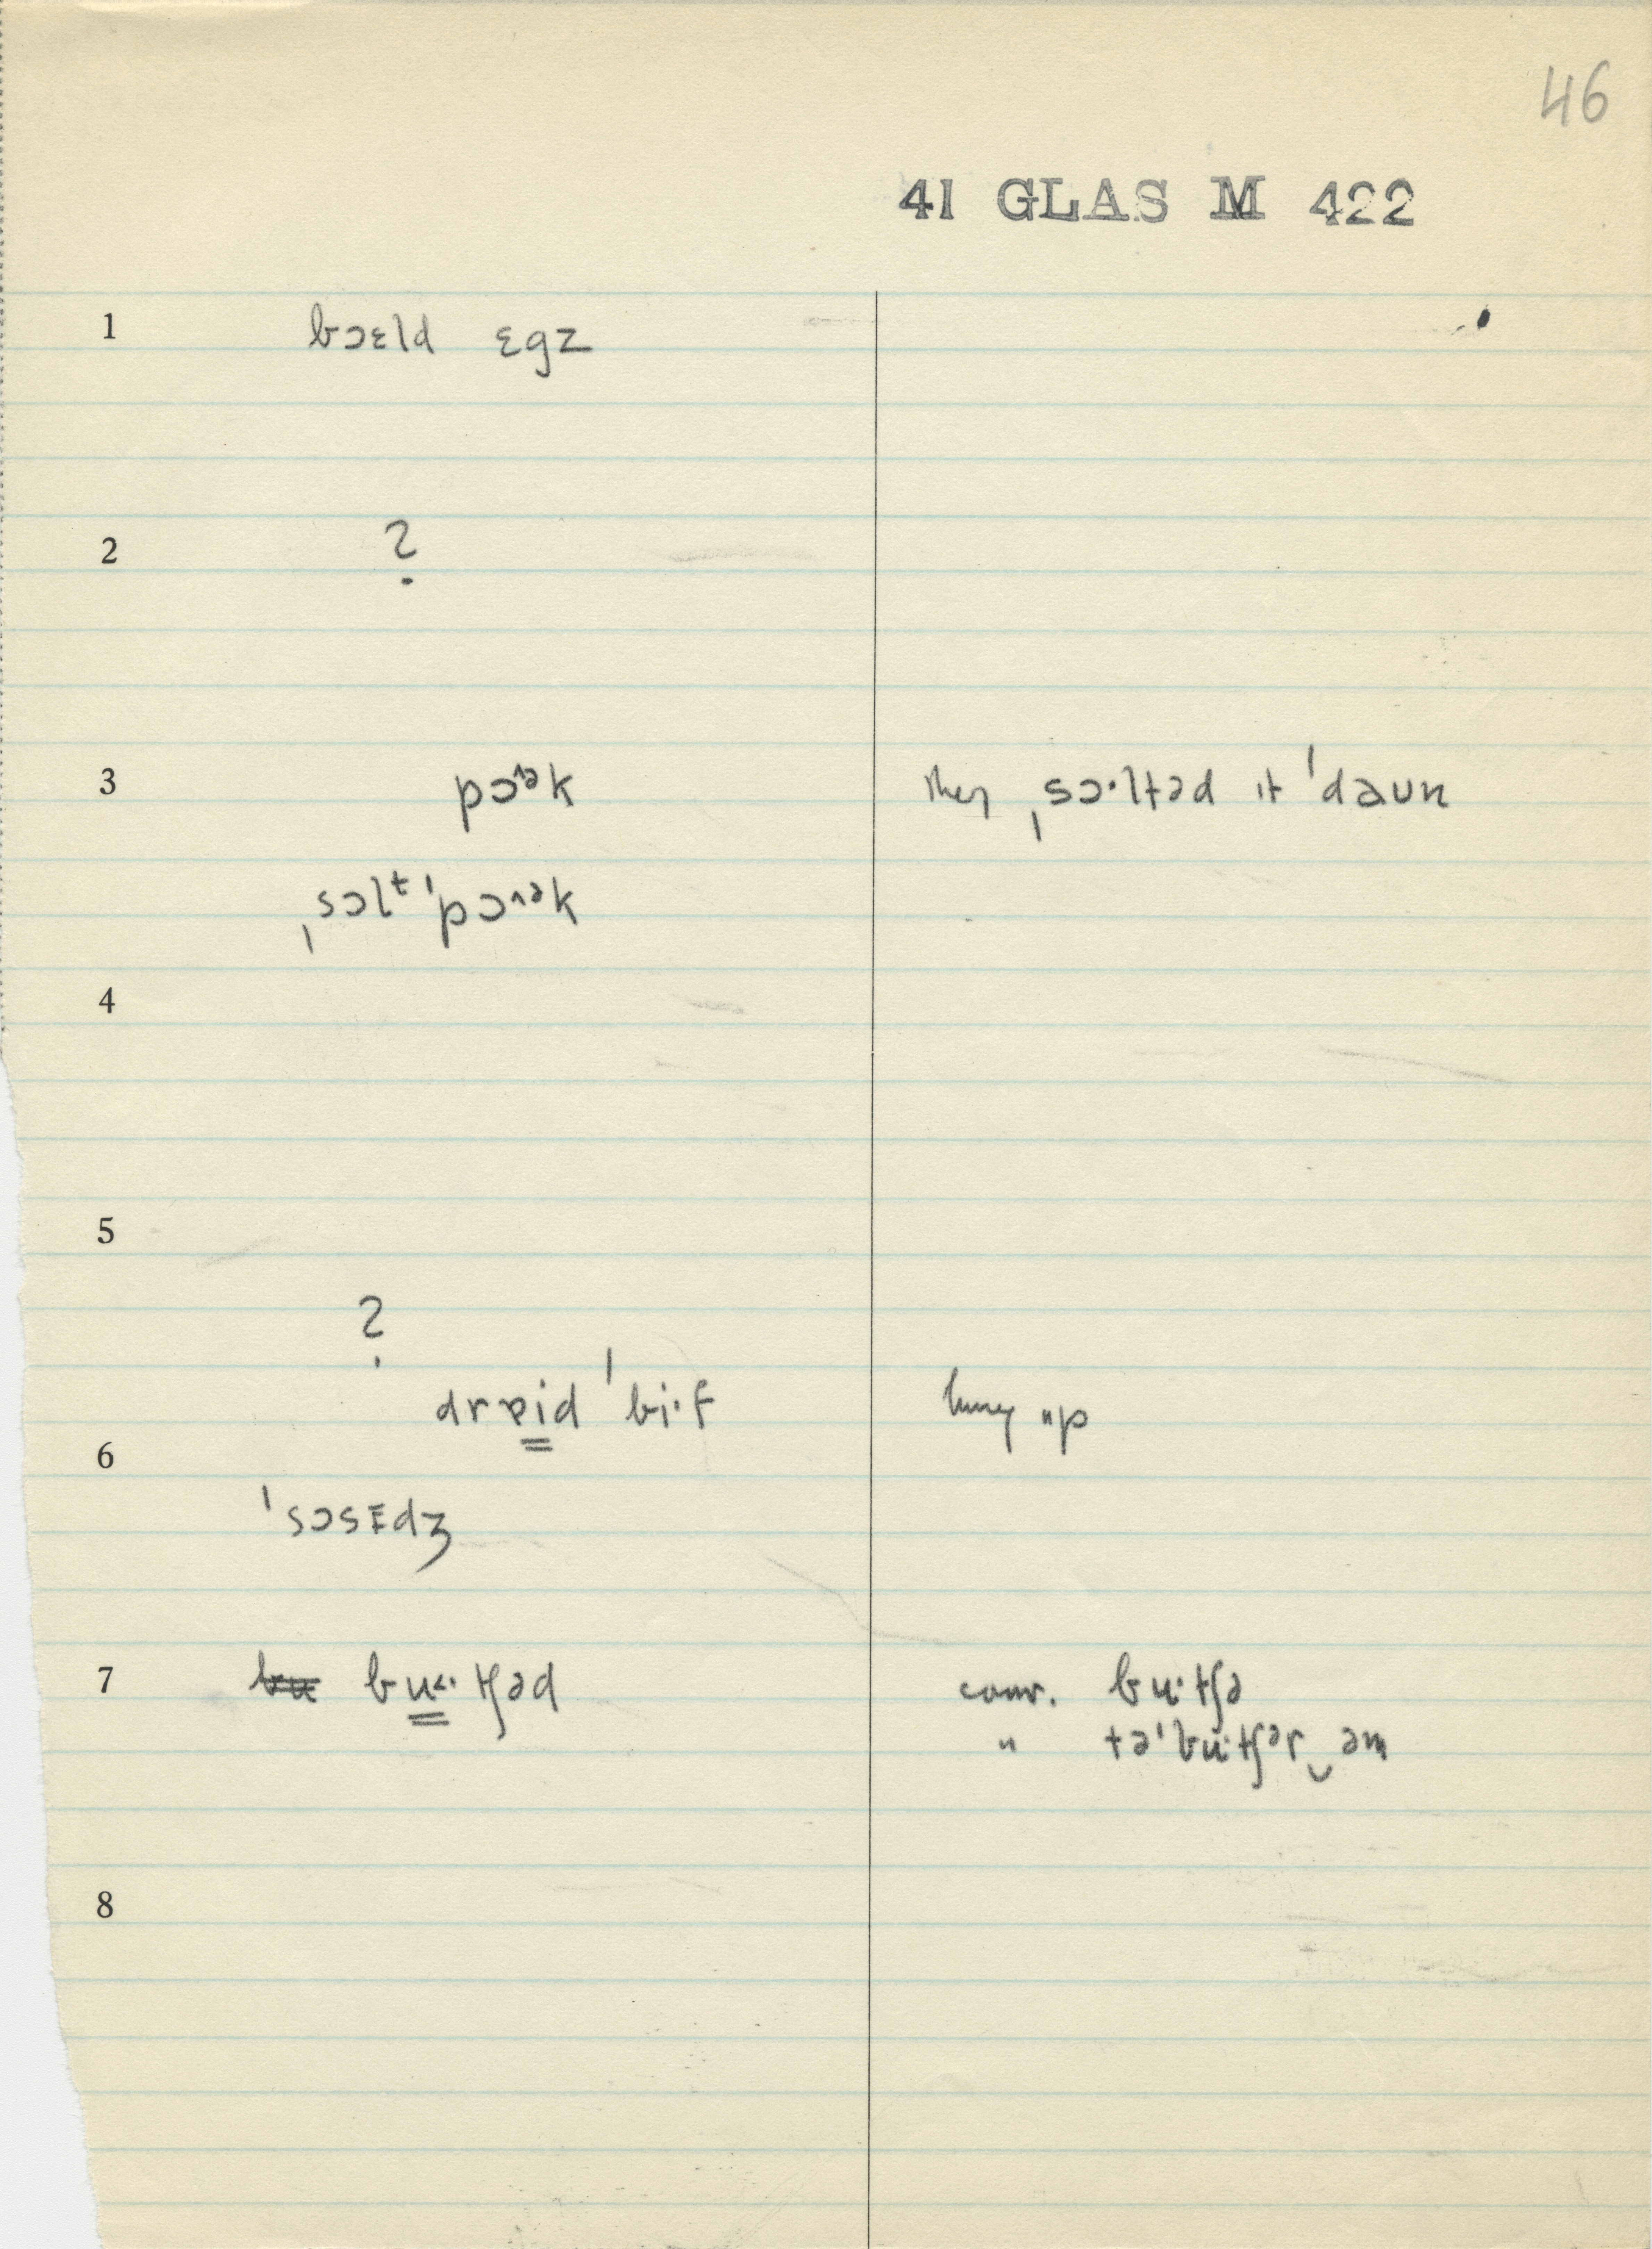 46
41 GLAS M 422
1 bɔɛld ɛgz
2 ?
3 pɔ˄ək they ˌsɔ·ltəd ɪt ˈdaʊn
ˌsɔlᵗ ˈpɔ˄ək
4
5
?
drɐid ˈbi·f hung up
6
ˈsɔsɪdʒ
7 bʉ bʉ˂·tʃəd conv. bʉ·tʃə
" təˈbʉ·tʃər‿əm
8